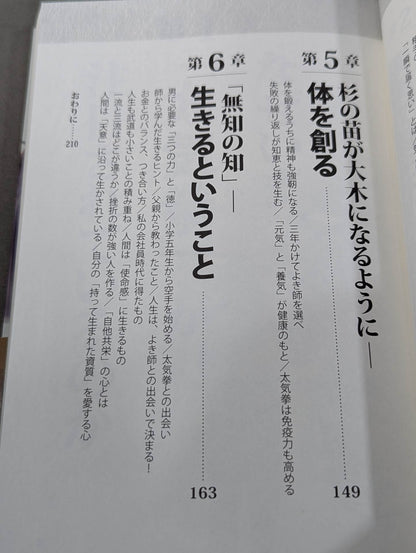 第5章
杉の苗が大木になるように――
体を創る
149
体を鍛えるうちに精神も強靭になる／三年かけてよき師を選べ
失敗の繰り返しが知恵と技を生む／「元気」と「養気」が健康のもと／太気拳は免疫力も高める
第6章
「無知の知」――
生きるということ
163
男に必要な「三つの力」と「徳」／小学五年生から空手を始める／太気拳との出会い
師から学んだ生きるヒント／父親から教わったこと／人生は、よき師との出会いで決まる！
お金とのバランス、つき合い方／私の会社員時代に得たもの
人生も武道も小さいことの積み重ね／人間は「使命感」に生きるもの
一流と三流はどこが違うか／挫折の数が強い人を作る／「自他共栄」の心とは
人間は「天意」に沿って生かされている／自分の「持って生まれた資質」を愛する心
おわりに
210